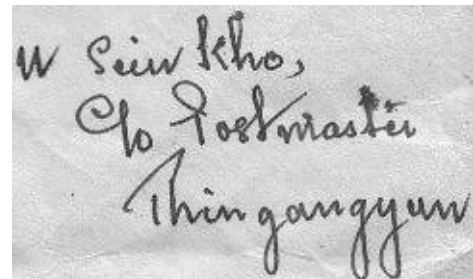 U Sein Kho,
C/o Postmaster
Thingangyun